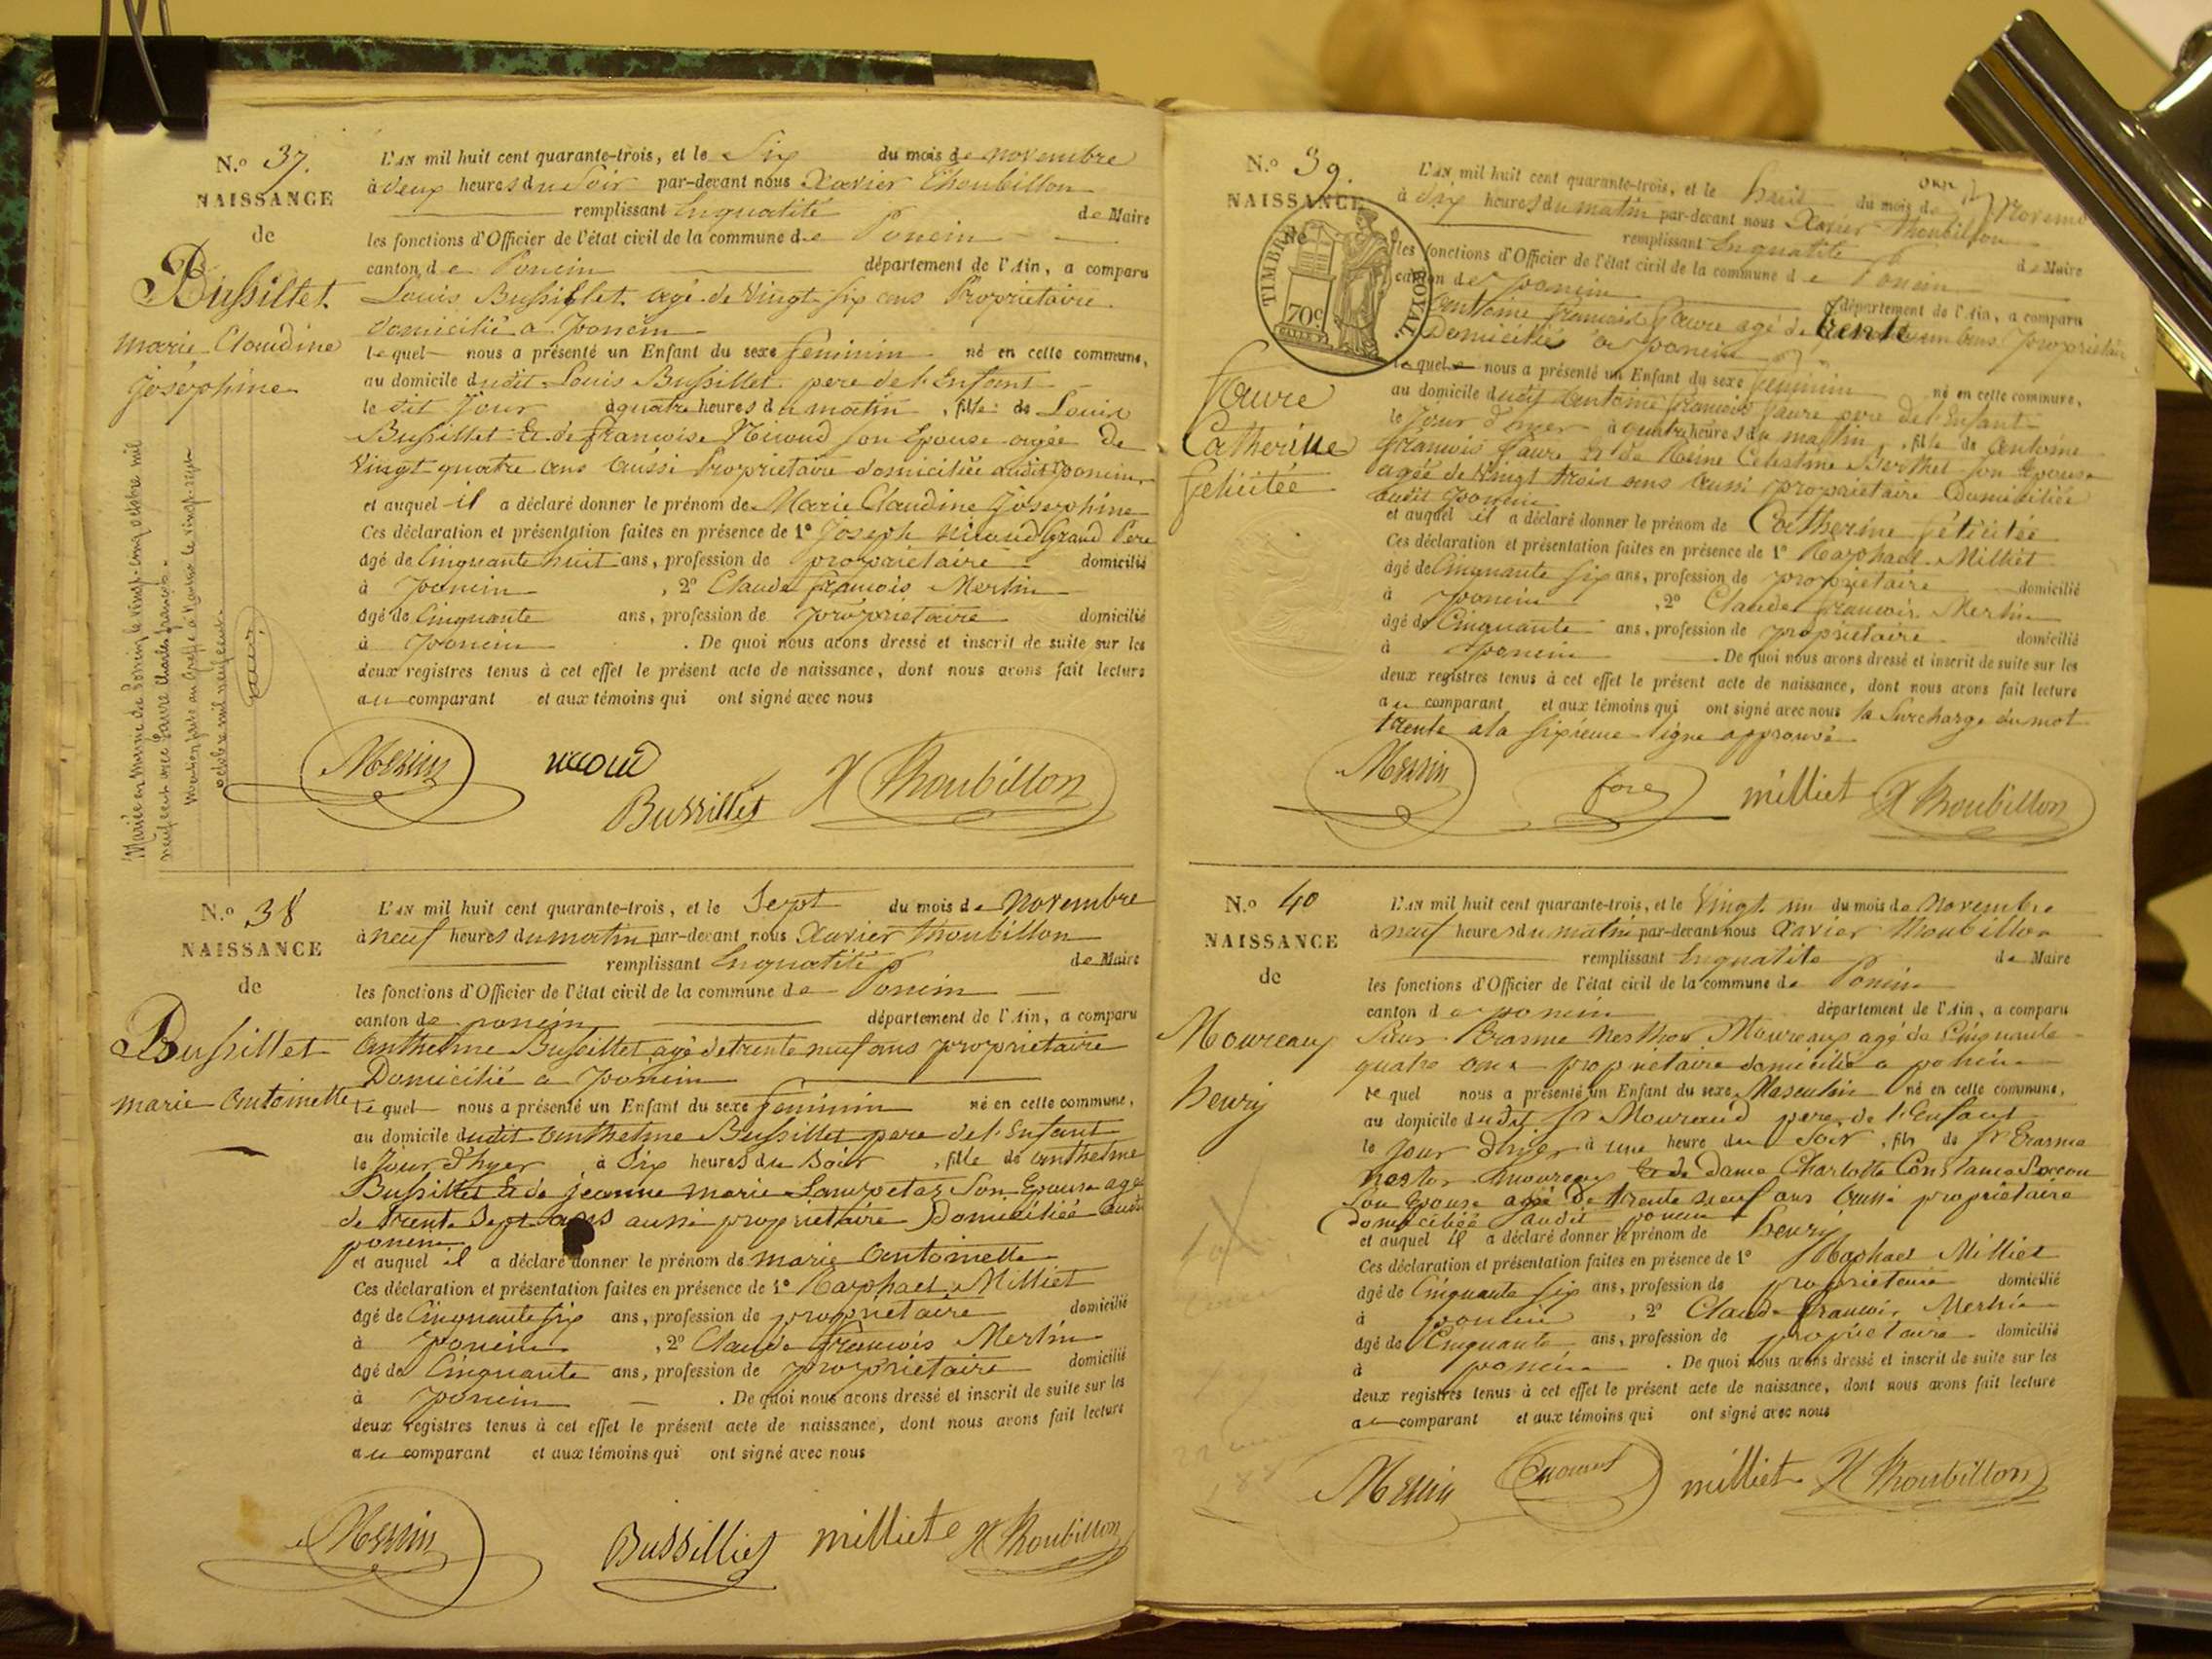 N.o 37.
NAISSANCE
de
Bussillet
marie Claudine
joséphine
L'AN mil huit cent quarante-trois, et le Six du mois de novembre
à deux heures du Soir par-devant nous Xavier Thoubillon
remplissant En qualité de Maire
les fonctions d'Officier de l'état civil de la commune de Poncin
canton de Poncin département de l'Ain, a comparu
Louis Bussillet agé de Vingt six ans Proprietaire
domicilié a poncin
lequel nous a présenté un Enfant du sexe feminin né en cette commune,
au domicile dudit Louis Bussillet pere de l'Enfant
le dit Jour à quatre heures du matin, fille de Louis
Bussillet Et de francoise Nicoud son Epouse agée de
Vingt quatre ans aussi Proprietaire domiciliée audit poncin
et auquel il a déclaré donner le prénom de Marie Claudine joséphine
Ces déclaration et présentation faites en présence de 1º Joseph Nicoud Grand Pere
âgé de Cinquante huit ans, profession de proprietaire domicilié
à poncin, 2º Claude françois Merlin
âgé de Cinquante ans, profession de proprietaire domicilié
à poncin. De quoi nous avons dressé et inscrit de suite sur les
deux registres tenus à cet effet le présent acte de naissance, dont nous avons fait lecture
au comparant et aux témoins qui ont signé avec nous
Merlin nicoud
Bussillet X Thoubillon
Mariée en mairie de Poncin le vingt-cinq octobre mil
neuf cent avec Faure Charles françois.
octobre mil neuf cent
N.o 38
NAISSANCE
de
Bussillet
marie Antoinette
L'AN mil huit cent quarante-trois, et le Sept du mois de Novembre
à neuf heures du matin par-devant nous Xavier Thoubillon
remplissant En qualité de Maire
les fonctions d'Officier de l'état civil de la commune de Poncin
canton de poncin département de l'Ain, a comparu
Anthelme Bussillet agé de trente neuf ans proprietaire
Domicilié a poncin
lequel nous a présenté un Enfant du sexe feminin né en cette commune,
au domicile dudit Anthelme Bussillet pere de l'Enfant
le Jour d'hyer à Six heures du Soir, fille de Anthelme
Bussillet Et de jeanne marie Son Epouse agé
de trente Sept ans aussi proprietaire Domiciliée audit
poncin
et auquel il a déclaré donner le prénom de marie Antoinette
Ces déclaration et présentation faites en présence de 1º Raphael Milliet
âgé de Cinquante six ans, profession de proprietaire domicilié
à poncin, 2º Claude françois Merlin
âgé de Cinquante ans, profession de proprietaire domicilié
à poncin. De quoi nous avons dressé et inscrit de suite sur les
deux registres tenus à cet effet le présent acte de naissance, dont nous avons fait lecture
au comparant et aux témoins qui ont signé avec nous
Merlin Bussilliet milliet X Thoubillon
N.o 39.
NAISSANCE
TIMBRE ROYAL
70c
Faure
Catherine
felicitée
L'AN mil huit cent quarante-trois, et le huit du mois de Novemb
à dix heures du matin par-devant nous Xavier Thoubillon
remplissant En qualité de Maire
les fonctions d'Officier de l'état civil de la commune de Poncin
canton de poncin département de l'Ain, a comparu
Antoine francois faure agé de trente un ans proprietaire
Domicilié a poncin
lequel nous a présenté un Enfant du sexe feminin né en cette commune,
au domicile dudit Antoine françois faure pere de l'Enfant
le Jour d'hier à quatre heures du matin, fille de Antoine
françois faure Et de Reine Celestine Berthet son Epouse
agée de Vingt trois ans aussi proprietaire Domiciliée
audit poncin
et auquel il a déclaré donner le prénom de Catherine félicitée
Ces déclaration et présentation faites en présence de 1º Raphael Milliet
âgé de Cinquante six ans, profession de proprietaire domicilié
à poncin, 2º Claude françois Merlin
âgé de Cinquante ans, profession de proprietaire domicilié
à poncin. De quoi nous avons dressé et inscrit de suite sur les
deux registres tenus à cet effet le présent acte de naissance, dont nous avons fait lecture
au comparant et aux témoins qui ont signé avec nous la Surcharge du mot
trente a la sixieme ligne approuvé
Merlin fore milliet X Thoubillon
N.o 40
NAISSANCE
de
Moureaux
henry
L'AN mil huit cent quarante-trois, et le Vingt un du mois de Novembre
à neuf heures du matin par-devant nous Xavier Thoubillon
remplissant En qualité de Maire
les fonctions d'Officier de l'état civil de la commune de Poncin
canton de poncin département de l'Ain, a comparu
Sieur Erasme Moureaux agé de Cinquante
quatre ans proprietaire domicilié a poncin
lequel nous a présenté un Enfant du sexe Masculin né en cette commune,
au domicile dudit Sr pere de l'Enfant
le jour d'hier à une heure du Soir, fils de Sr Erasme
Et de Dame Charlotte Constance
Son Epouse agé de trente neuf ans aussi proprietaire
domiciliée audit poncin
et auquel il a déclaré donner le prénom de henry
Ces déclaration et présentation faites en présence de 1º Raphael Milliet
âgé de Cinquante six ans, profession de proprietaire domicilié
à poncin, 2º Claude francois Merlin
âgé de Cinquante ans, profession de proprietaire domicilié
à poncin. De quoi nous avons dressé et inscrit de suite sur les
deux registres tenus à cet effet le présent acte de naissance, dont nous avons fait lecture
au comparant et aux témoins qui ont signé avec nous
Merlin milliet X Thoubillon